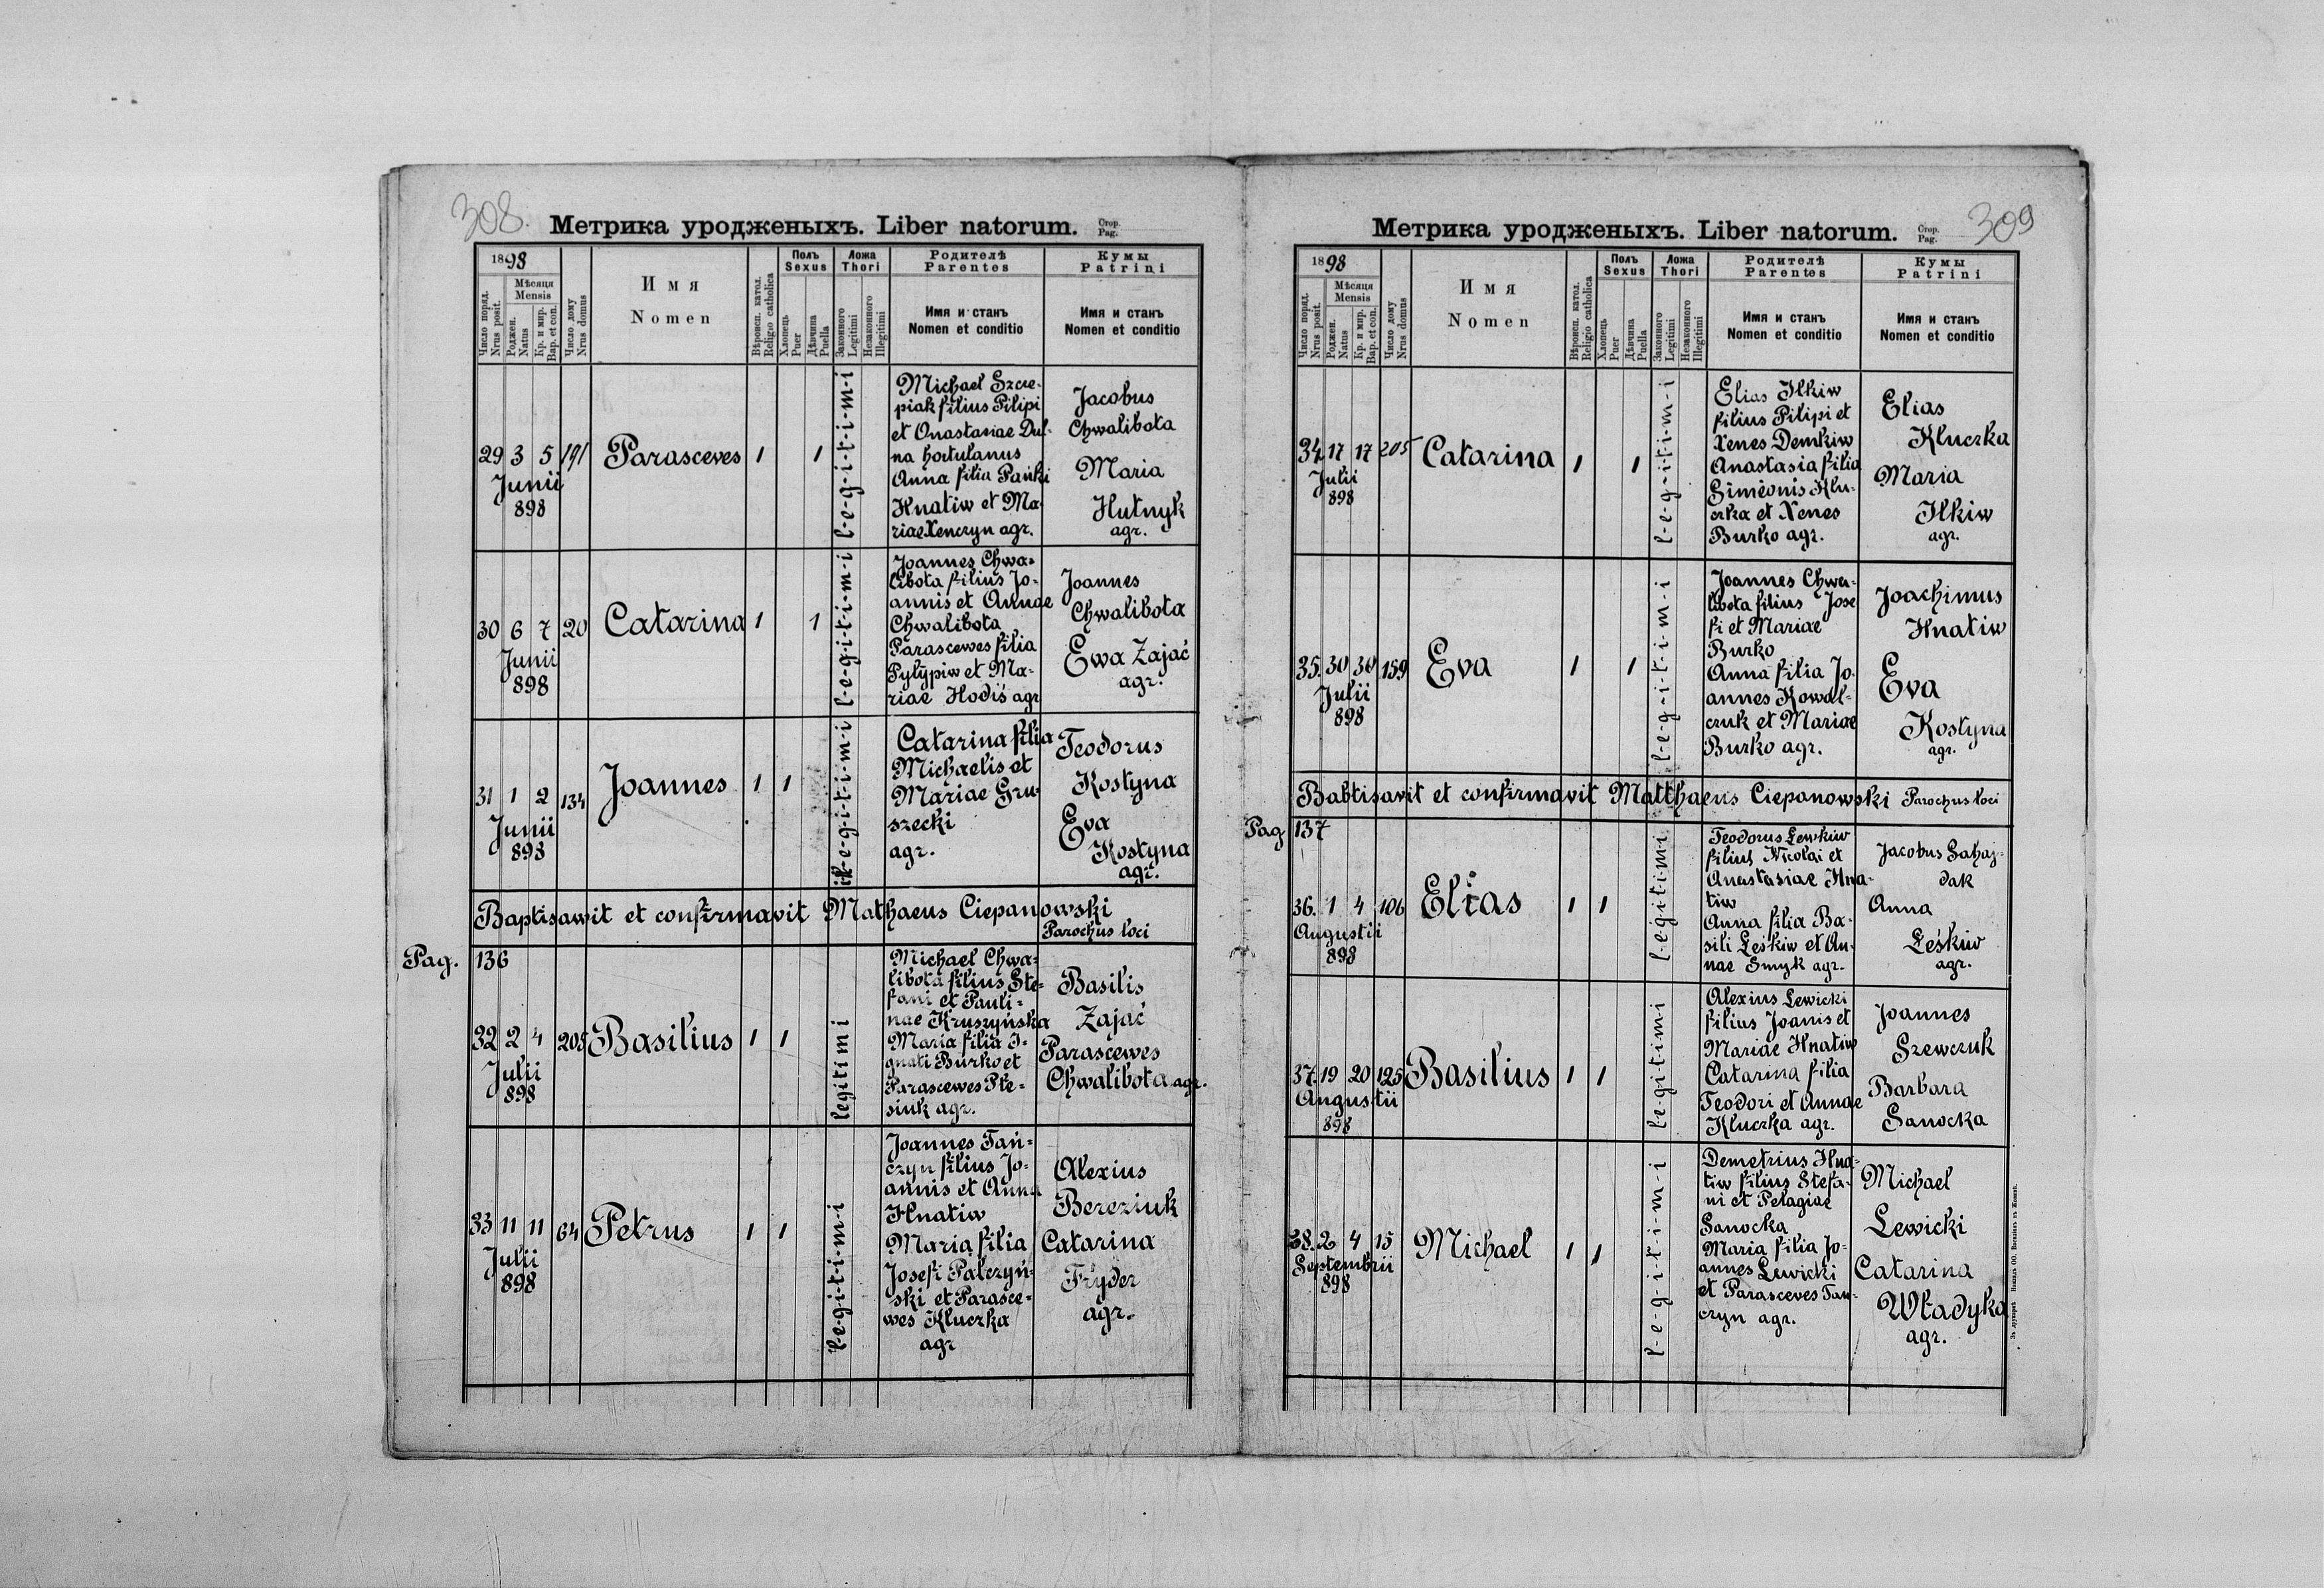 308.
Метрика уродженыхъ. Liber natorum. Стор. Pag.
1898
Число поряд. Nrus posit.
Мѣсяця Mensis
Роджен. Natus
Кр. и мир. Bap. et con.
Число дому Nrus domus
Имя
Nomen
Вѣроисп. катол. Religio catholica
Полъ Sexus
Хлопець Puer
Дѣвчина Puella
Ложа Thori
Законного Legitimi
Незаконного Illegitimi
Родителѣ Parentes
Имя и станъ
Nomen et conditio
Кумы Patrini
Имя и станъ
Nomen et conditio
29 3 5 191 Parasceves 1 1
Junii
898
l-e-g-i-t-i-m-i
Michael Szcze-
piak filius Pilipi
et Anastasiae Dul-
na hortulanus
Anna filia Pańki
Hnatiw et Ma-
riae Xenczyn agr.
Jacobus
Chwalibota
Maria
Hutnyk
agr.
30 6 7 20 Catarina 1 1
Junii
898
l-e-g-i-t-i-m-i
Joannes Chwa-
libota filius Jo-
annis et Annae
Chwalibota
Parascewes filia
Pylypiw et Ma-
riae Hodiś agr
Joannes
Chwalibota
Ewa Zająć
agr.
31 1 2 134 Joannes 1 1
Junii
898
il-e-g-i-t-i-m-i
Catarina filia
Michaelis et
Mariae Gru-
szecki
agr.
Teodorus
Kostyna
Eva
Kostyna
agr.
Baptisawit et confirmavit Mathaeus Ciepanowski
Parochus loci
Pag. 136
32 2 4 205 Basilius 1 1
Julii
898
legitimi
Michael Chwa-
libota filius Ste-
fani et Pauli-
nae Kruszyńska
Maria filia I-
gnati Burko et
Parascewes Ple-
siuk agr.
Basilis
Zająć
Parascewes
Chwalibota agr.
33 11 11 64 Petrus 1 1
Julii
898
l-e-g-i-t-i-m-i
Joannes Tań-
czyn filius Jo-
annis et Anna
Hnatiw
Maria filia
Josefi Palczyń-
ski et Parasce-
wes Kluczka
agr
Alexius
Bereziuk
Catarina
Fryder
agr.
309
Метрика уродженыхъ. Liber natorum. Стор. Pag.
1898
Число поряд. Nrus posit.
Мѣсяця Mensis
Роджен. Natus
Кр. и мир. Bap. et con.
Число дому Nrus domus
Имя
Nomen
Вѣроисп. катол. Religio catholica
Полъ Sexus
Хлопець Puer
Дѣвчина Puella
Ложа Thori
Законного Legitimi
Незаконного Illegitimi
Родителѣ Parentes
Имя и станъ
Nomen et conditio
Кумы Patrini
Имя и станъ
Nomen et conditio
34 17 17 205 Catarina 1 1
Julii
898
l-e-g-i-t-i-m-i
Elias Ilkiw
filius Pilipi et
Xenes Demkiw
Anastasia filia
Simeonis Klu-
czka et Xenes
Burko agr.
Elias
Kluczka
Maria
Ilkiw
agr.
35. 30 30 159 Eva 1 1
Julii
898
l-e-g-i-t-i-m-i
Joannes Chwa-
libota filius Jose
fi et Mariae
Burko
Anna filia Jo-
annes Kowal-
czuk et Mariae
Burko agr.
Joachimus
Hnatiw
Eva
Kostyna
agr.
Babtisavit et confirmavit Matthaeus Ciepanowski Parochus loci
Pag 137
36. 1 4 106 Elias 1 1
Augustii
898
legitimi
Teodorus Lewkiw
filius Nicolai et
Anastasiae Hna-
tiw
Anna filia Ba-
sili Leśkiw et An-
nae Smyk agr.
Jacobus Sahaj-
dak
Anna
Leśkiw
agr.
37. 19 20 125 Basilius 1 1
Augustii
898
legitimi
Alexius Lewicki
filius Joanis et
Mariae Hnatiw
Catarina filia
Teodori et Annae
Kluczka agr.
Joannes
Szewczuk
Barbara
Sanocka
38. 2 4 15 Michael 1 1
Septembrii
898
l-e-g-i-t-i-m-i
Demetrius Hna-
tiw filius Stefa-
ni et Pelagiae
Sanocka
Maria filia Jo-
annes Lewicki
et Parasceves Tan-
czyn agr.
Michael
Lewicki
Catarina
Władyka
agr.